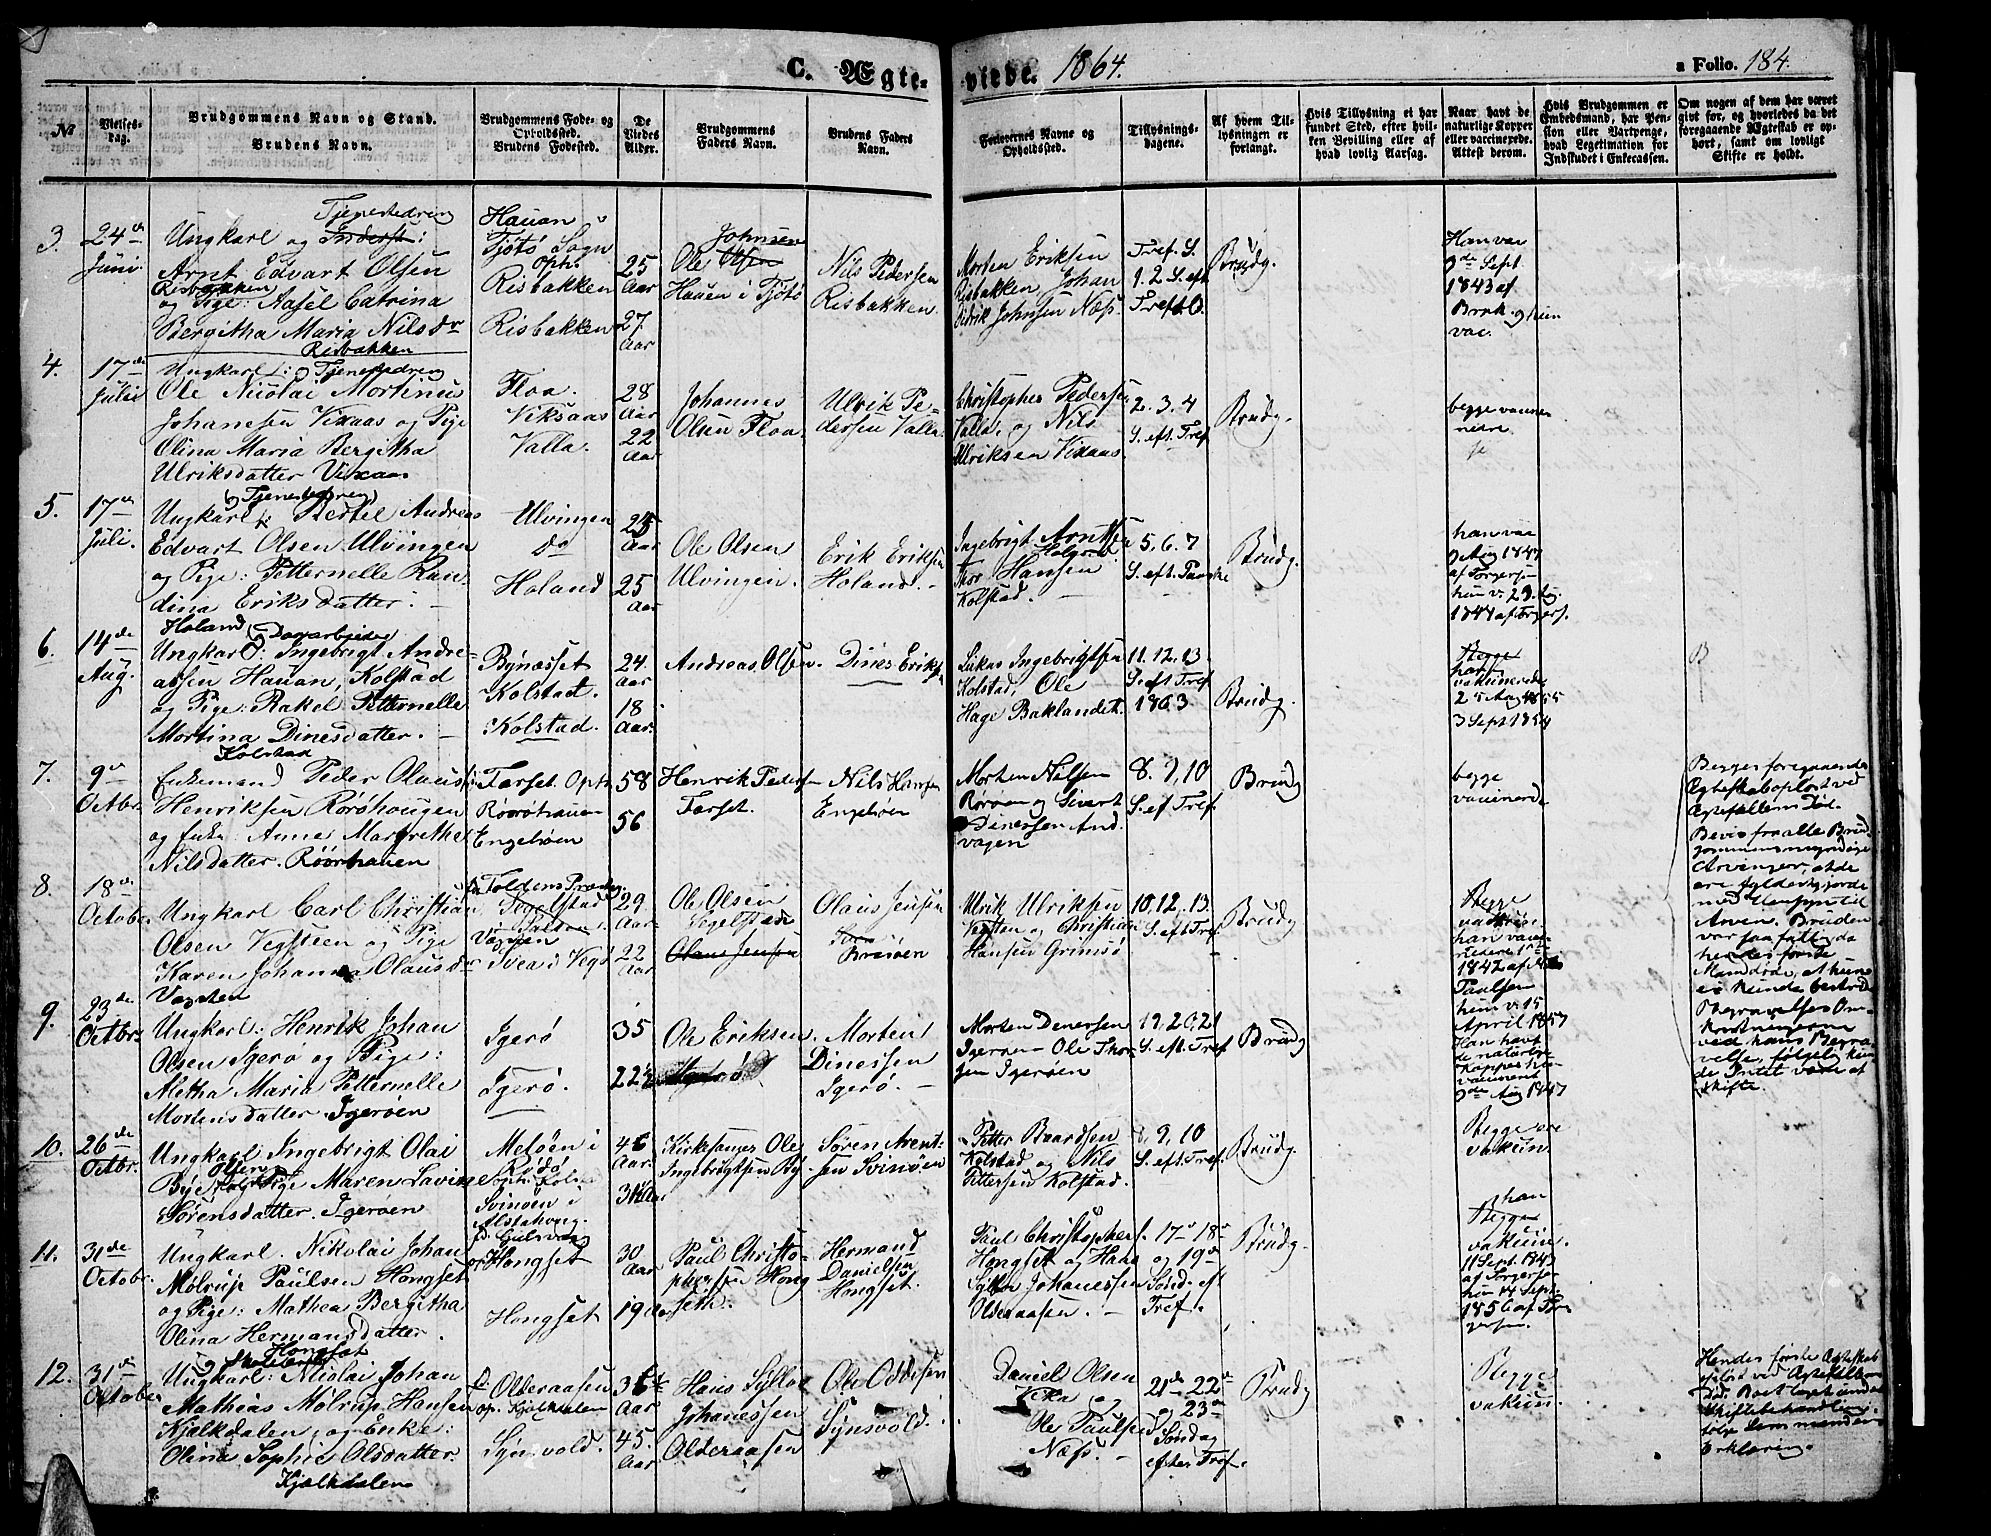 C. Ægte-
virde. 1864.
a Folio. 184.
No
Vielses-
dag.
Brudgommens Navn og Stand.
Brudens Navn.
Brudgommens Føde- og
Opholdssted.
Brudens Fødested.
De
Viedes
Alder.
Brudgommens
Faders Navn.
Brudens Faders
Navn.
Forlovernes Navne og
Opholdssted.
Tillysnings-
dagene.
Af hvem Til-
lysningen er
forlangt.
Hvis Tillysning ei har
fundet Sted, efter hvil-
ken Bevilling eller af
hvad lovlig Aarsag.
Naar havt de
naturlige Kopper
eller vaccinerede.
Attest derom.
Hvis Brudgommen er
Embedsmand, har Pen-
sion eller Vartpenge,
hvad Legitimation for
Indskudet i Enkecassen.
Om nogen af dem har været
gift før, og hvorledes da det
foregaaende Ægteskab er op-
hørt, samt om lovligt
Skifte er holdt.
3.
24de
Juni.
Tjenestedreng
Ungkarl og Inderst:
Arnt Edvart Olsen
Risbakken
og Pige: Aasel Catrina
Bergitha Maria Nilsdr
Risbakken
Hauan
Tjøtø Sogn
Oph:
Risbakken
Risbakken
25
Aar
27
Aar
Johnsen
Ole Olsen
Hauen i Tjøtø
Nils Pedersen
Risbakken.
Morten Eriksen
Risbakken, Johan
Didrik Johnsen Næss
Tref. S.
1. 2. S. eft
Tref.
Brudg.
Han vac
9de Sept.
1843 af
Brok. og hun
vac.
4.
17de
Juli
Ungkarl: og Tjenestedreng
Ole Nicolai Mortinus
Johanesen Vixaas og Pige
Olina Maria Bergitha
Ulriksdatter Vixaas
Floa.
Viksaas
Valla.
28
Aar
22
Aar
Johannes
Olsen Floa.
Ulrik Pe-
dersen Valla
Christopher Pedersen
Valla, og Nils
Ulriksen Vixaas.
2. 3. 4
S. eft. Tref
Brudg.
begge vaccine-
rede.
5.
17de
Juli.
(Tjenestedreng)
Ungkarl: Bertel Andreas
Edvart Olsen Ulvingen
og Pige: Petternelle Ran-
dina Eriksdatter. —
Holand
Ulvingen
do
Holand
25
Aar
25
Aar
Ole Olsen
Ulvingen.
Erik Eriksen
Holand. —
Ingebrigt Arntsen
Thor Hansen
Kolstad. —
5, 6. 7
S. eft. Paaske
Brudg.
han vac
9 Aug 1847
af Torgersen
hun v. 29. Aug.
1844 af Torgers.
6.
14de
Aug.
(Dagarbeider
Ungkarl: Ingebrigt Andre-
assen Hauan, Kolstad
og Pige: Rakel Petternelle
Martina Dinesdatter. —
Kolstad
Bynæsset
Kolstad.
Kolstad.
24.
Aar
18
Aar.
Andreas Olsen.
Dines Eriksen
Lukas Ingebrigtsen
Kolstad, Ole
Hage Baklandet.
11. 12. 13.
S. eft Tref
1863
Brudg.
Begge
han
vakcinerede
25 Aug 1855
3 Sept 1854
B
7.
9de
Octbr.
Enkemand Peder Olaus
Henriksen Rørøhougen
og Enke: Anne Margrethe
Nilsdatter. Røørhauen
Torset. Oph:
Rørøhauen
Engeløen
58
56
Henrik Peders-
Torset.
Nils Hansen
Engeløen
Morten Nilsen
Rørøen og Sivert
Dinessen And-
vagen
8. 9, 10
S. ef. Tref
Brudg
begge
vaccinerede
Begges foregaaende
Ægteskab opløst ved
Ægtefællens Død.
Bevis fra alle Brud-
gommens myndige
Arvinger, at de
ere fyldestgjorde
med Hensyn til
Arven. Bruden
var saa fattig da
hendes første
Mand døde, at hun
ei kunde bestride
Begravelses Om-
kostningerne
ved hans Begra-
velse, følgelig kun-
de Intet være at
skifte.
8.
18de
October
Ungkarl Carl Christian
Olsen Vegsteen og Pige
Karen Johanna Olausdr
Vegsten
Segelstad
Vegsten
Svea i Vegø
29
Aar
22
Aar
Ole Olsen
Segelstad
Olaus Jensen
Olaus Jensen
Ulrik Ulriksen
Vegsten og Christian
Hansen Grimsø
10, 12, 13.
S. eft Tref
Brudg
Begge
han vacci-
neret 1ste
1842 af
Paulsen
hun v. 15
April 1857
9.
23de
Octbr.
Ungkarl: Henrik Johan
Olsen Igerø og Pige:
Aletha Maria Petternelle
Mortensdatter. Igerøen
Igerø
Igerø.
35
22
Ole Eriksen
Igerø
Morten
Dinessen
Igerø. —
Morten Denersen
Igerøen — Ole Thor-
sen Igerøen
19, 20, 21
S. eft. Tref.
Brudg
Han havt
de naturlige
Kopper hun
vaccineret
9de Aug 1847
10.
26de
Octbr.
Ungkarl Ingebrigt Olai
Olsen
Bye Kols. Pige Maren Lavin-
Sørensdatter. Igerøen
Meløen i
Rødø
Oph: Kols-
Svinøen i
Alstahoug.
46
Aar.
31 Aar
Kirkesanger Ole
Ingebrigtsen By.
Søren Arent-
sen Svinøen
Petter Baardsen
Kolstad og Nils
Pettersen Kolstad.
8, 9, 10
S. eft. Tref.
Brudg.
Begge ere
vakcin.
11.
31de
Octobr.
Ungkarl. Nikolai Johan
Mølrup Paulsen Hongset
og Pige: Mathea Bergitha
Olina Hermansdatter.
Hongset
Hongset
Hongset
30.
Aar
19 Aar
Paul Christo-
phersen Hong
seth.
Hermand
Danielsen
Hongset.
Paul Christophers.
Hongset og Hans
Sylten Johanessen
Olderaasen. —
17de 18de
og 19de
Sønd. eft
Tref.
Brudg.
han
Begge
vakcin.
11 Sept. 1843
af Torgersen
hun 14 Sept.
1856 af Tor-
gersen.
12.
31de
October
Ungkarl: Nicolai Johan
Mathias Mølrup Hansen
Kjalkdalen, og Enke:
Olina Sophie Olsdatter.
Kjalkdalen
Olderaasen
op. Kjalkdalen
Synsvold.
Aar
45.
Aar
Hans Sylten
Johanessen
Olderaasen
Ole Oddesen
Synsvold.
Daniel Olsen
og
Ole Paulsen
Næss. —
21de 22de
og 23de
Søndag
efter Tref.
Brudg
Begge
vakcin.
Hendes første Ægteskab
opløst ved Ægtefællens
Død.
Skiftebehandling
følge Lensmandens
Erklæring.